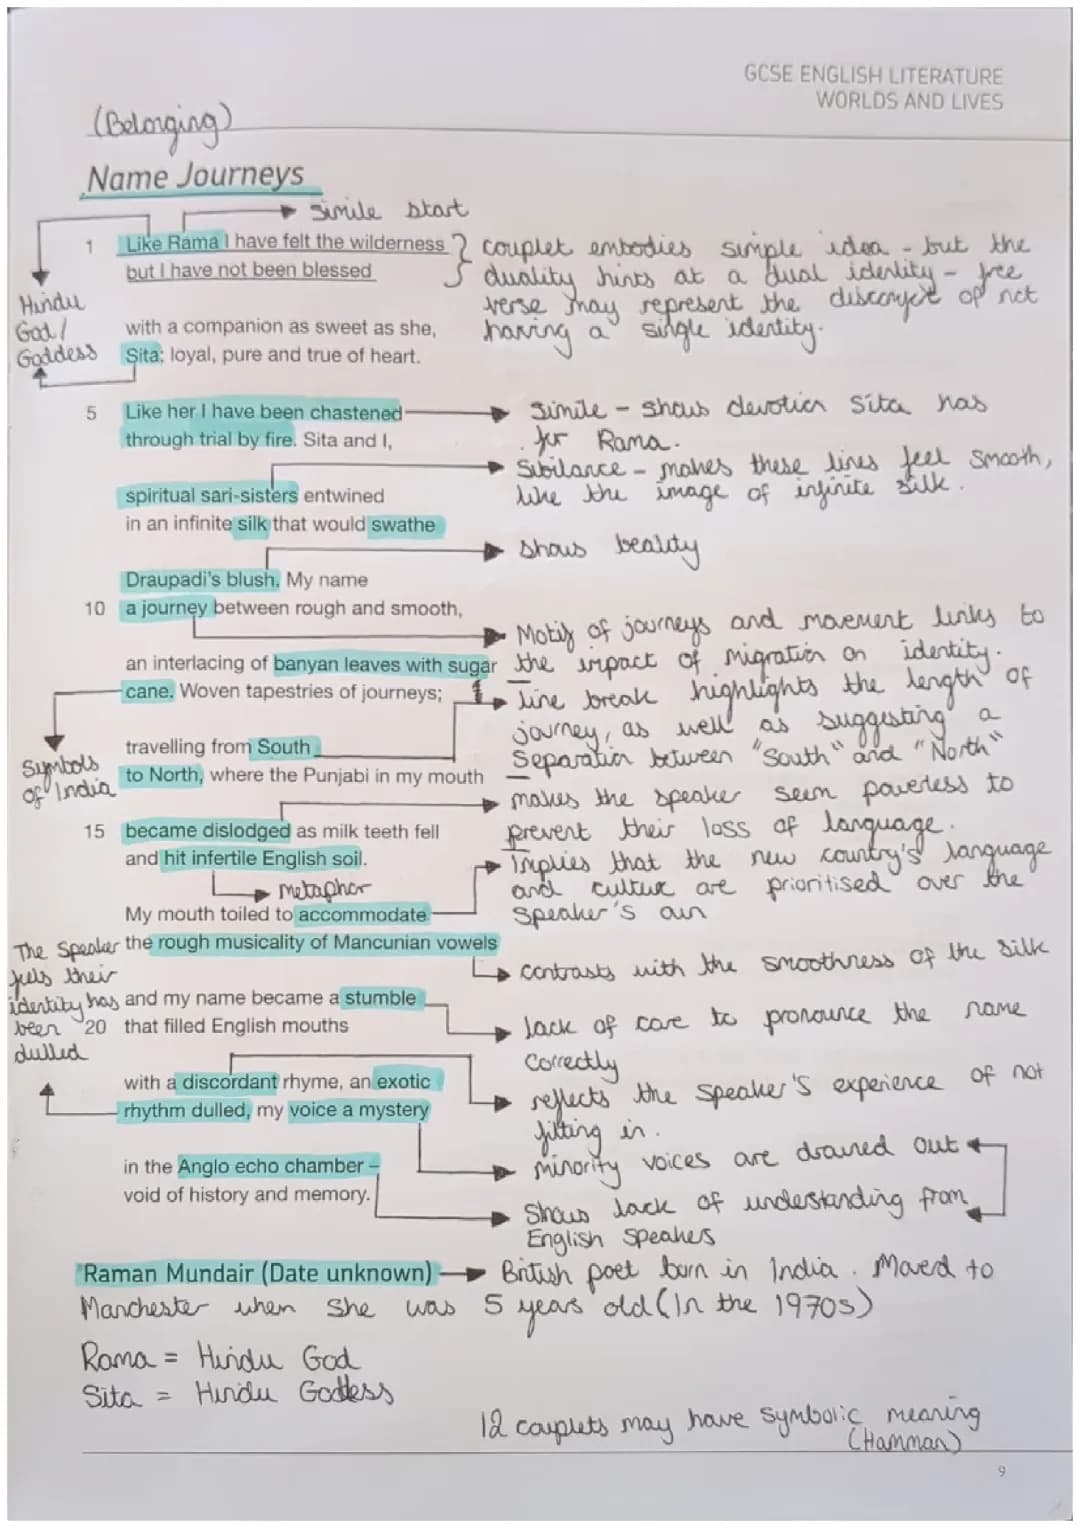 GCSE ENGLISH LITERATURE
WORLDS AND LIVES
(Belonging)
Name Journeys
simile start
1 Like Rama I have felt the wilderness
but I have not been blessed
couplet embodies simple idea - but the
duality hints at a dual identity - free
verse may represent the discomfort of not
having a single identity.
Hindu
God/
Goddess
with a companion as sweet as she,
Sita; loyal, pure and true of heart.
5 Like her I have been chastened
through trial by fire. Sita and I,
simile - shows devotion Sita has
for Rama.
Sibilance - makes these lines feel smooth,
like the image of infinite silk.
spiritual sari-sisters entwined
in an infinite silk that would swathe
shows beauty
Draupadi's blush. My name
10 a journey between rough and smooth,
Motif of journeys and movement links to
the impact of migration on identity.
an interlacing of banyan leaves with sugar
cane. Woven tapestries of journeys;
line break highlights the length of
journey, as well as suggesting a
Separation between "South" and "North"
Symbols
of India
travelling from South
to North, where the Punjabi in my mouth
makes the speaker seem powerless to
prevent their loss of language.
15 became dislodged as milk teeth fell
and hit infertile English soil.
metaphor
Implies that the new country's language
and culture are prioritised over the
speaker's own
My mouth toiled to accommodate
the rough musicality of Mancunian vowels
contrasts with the smoothness of the silk
The Speaker
feels their
identity has
been
dulled
and my name became a stumble
20 that filled English mouths
lack of care to pronounce the name
correctly
with a discordant rhyme, an exotic
rhythm dulled, my voice a mystery
reflects the speaker's experience of not
fitting in.
minority voices are drowned out
in the Anglo echo chamber –
void of history and memory.
Shows lack of understanding from
English speakers
Raman Mundair (Date unknown) British poet born in India. Moved to
Manchester when she was 5 years old (In the 1970s)
Rama = Hindu God
Sita = Hindu Goddess
12 couplets may have symbolic meaning
(Hamman)
9